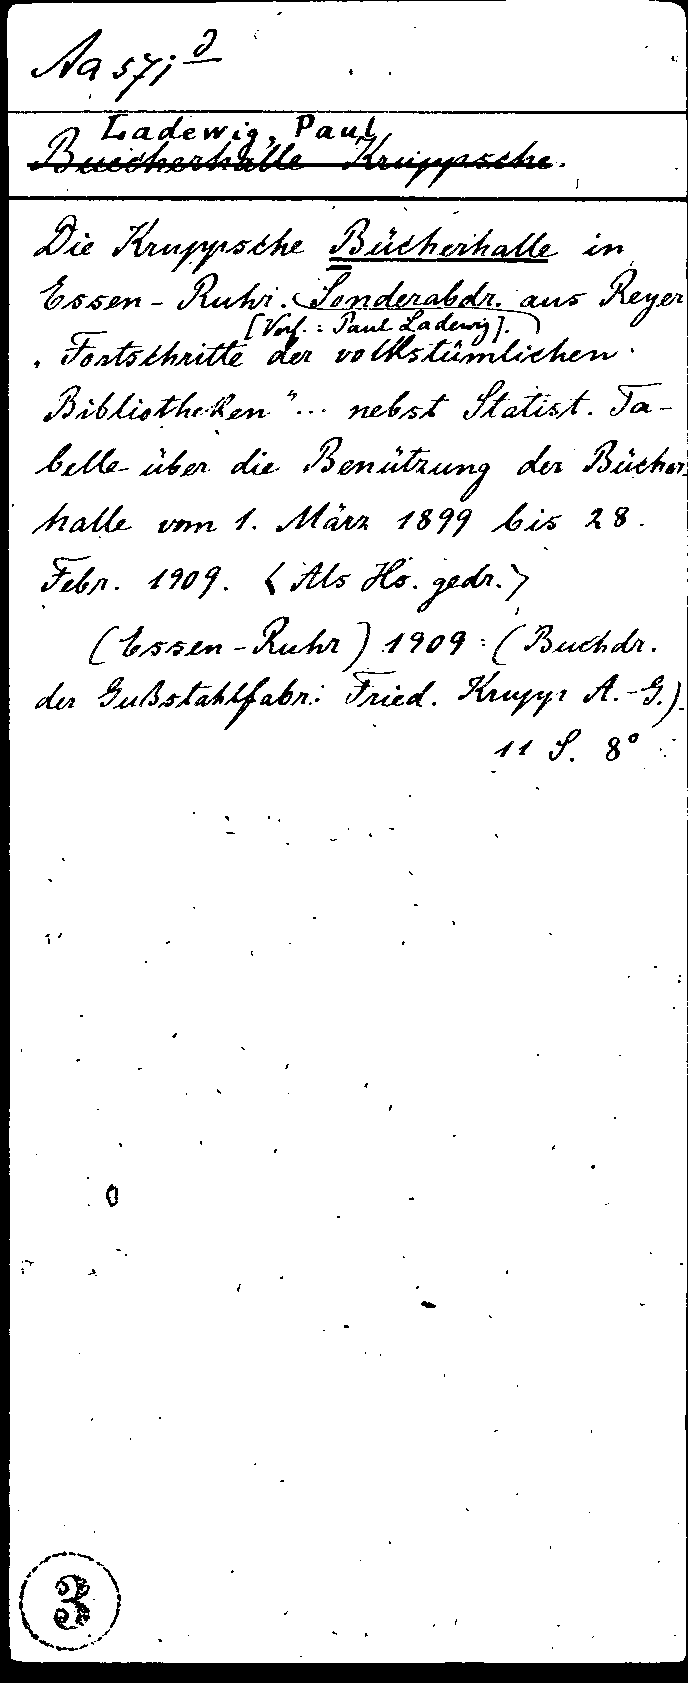 Aa 571 d
Ladewig, Paul
Buecherhalle Kruppsche.
Die Kruppsche Bücherhalle in
Essen-Ruhr. (Sonderabdr. aus Reyer
[Verf.: Paul Ladewig].
"Fortschritte der volkstümlichen
Bibliotheken"... nebst Statist. Ta-
belle über die Benützung der Bücher-
halle vom 1. März 1899 bis 28.
Febr. 1909. <Als Hs. gedr.>
(Essen-Ruhr) 1909: (Buchdr.
der Gußstahlfabr.: Fried. Krupp A.-G.).
11 S. 8°
3